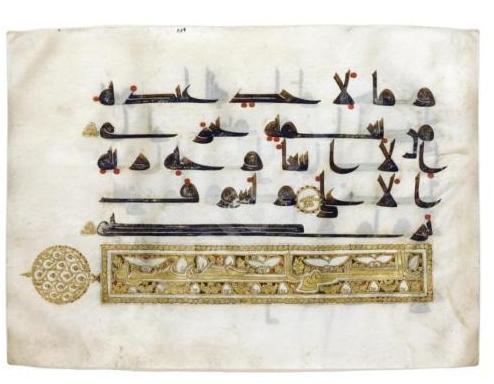 وما لاحد عنده
من نعمة تجزى
الا ابتغا وجه ربه
الاعلى ولسوف
يرضى